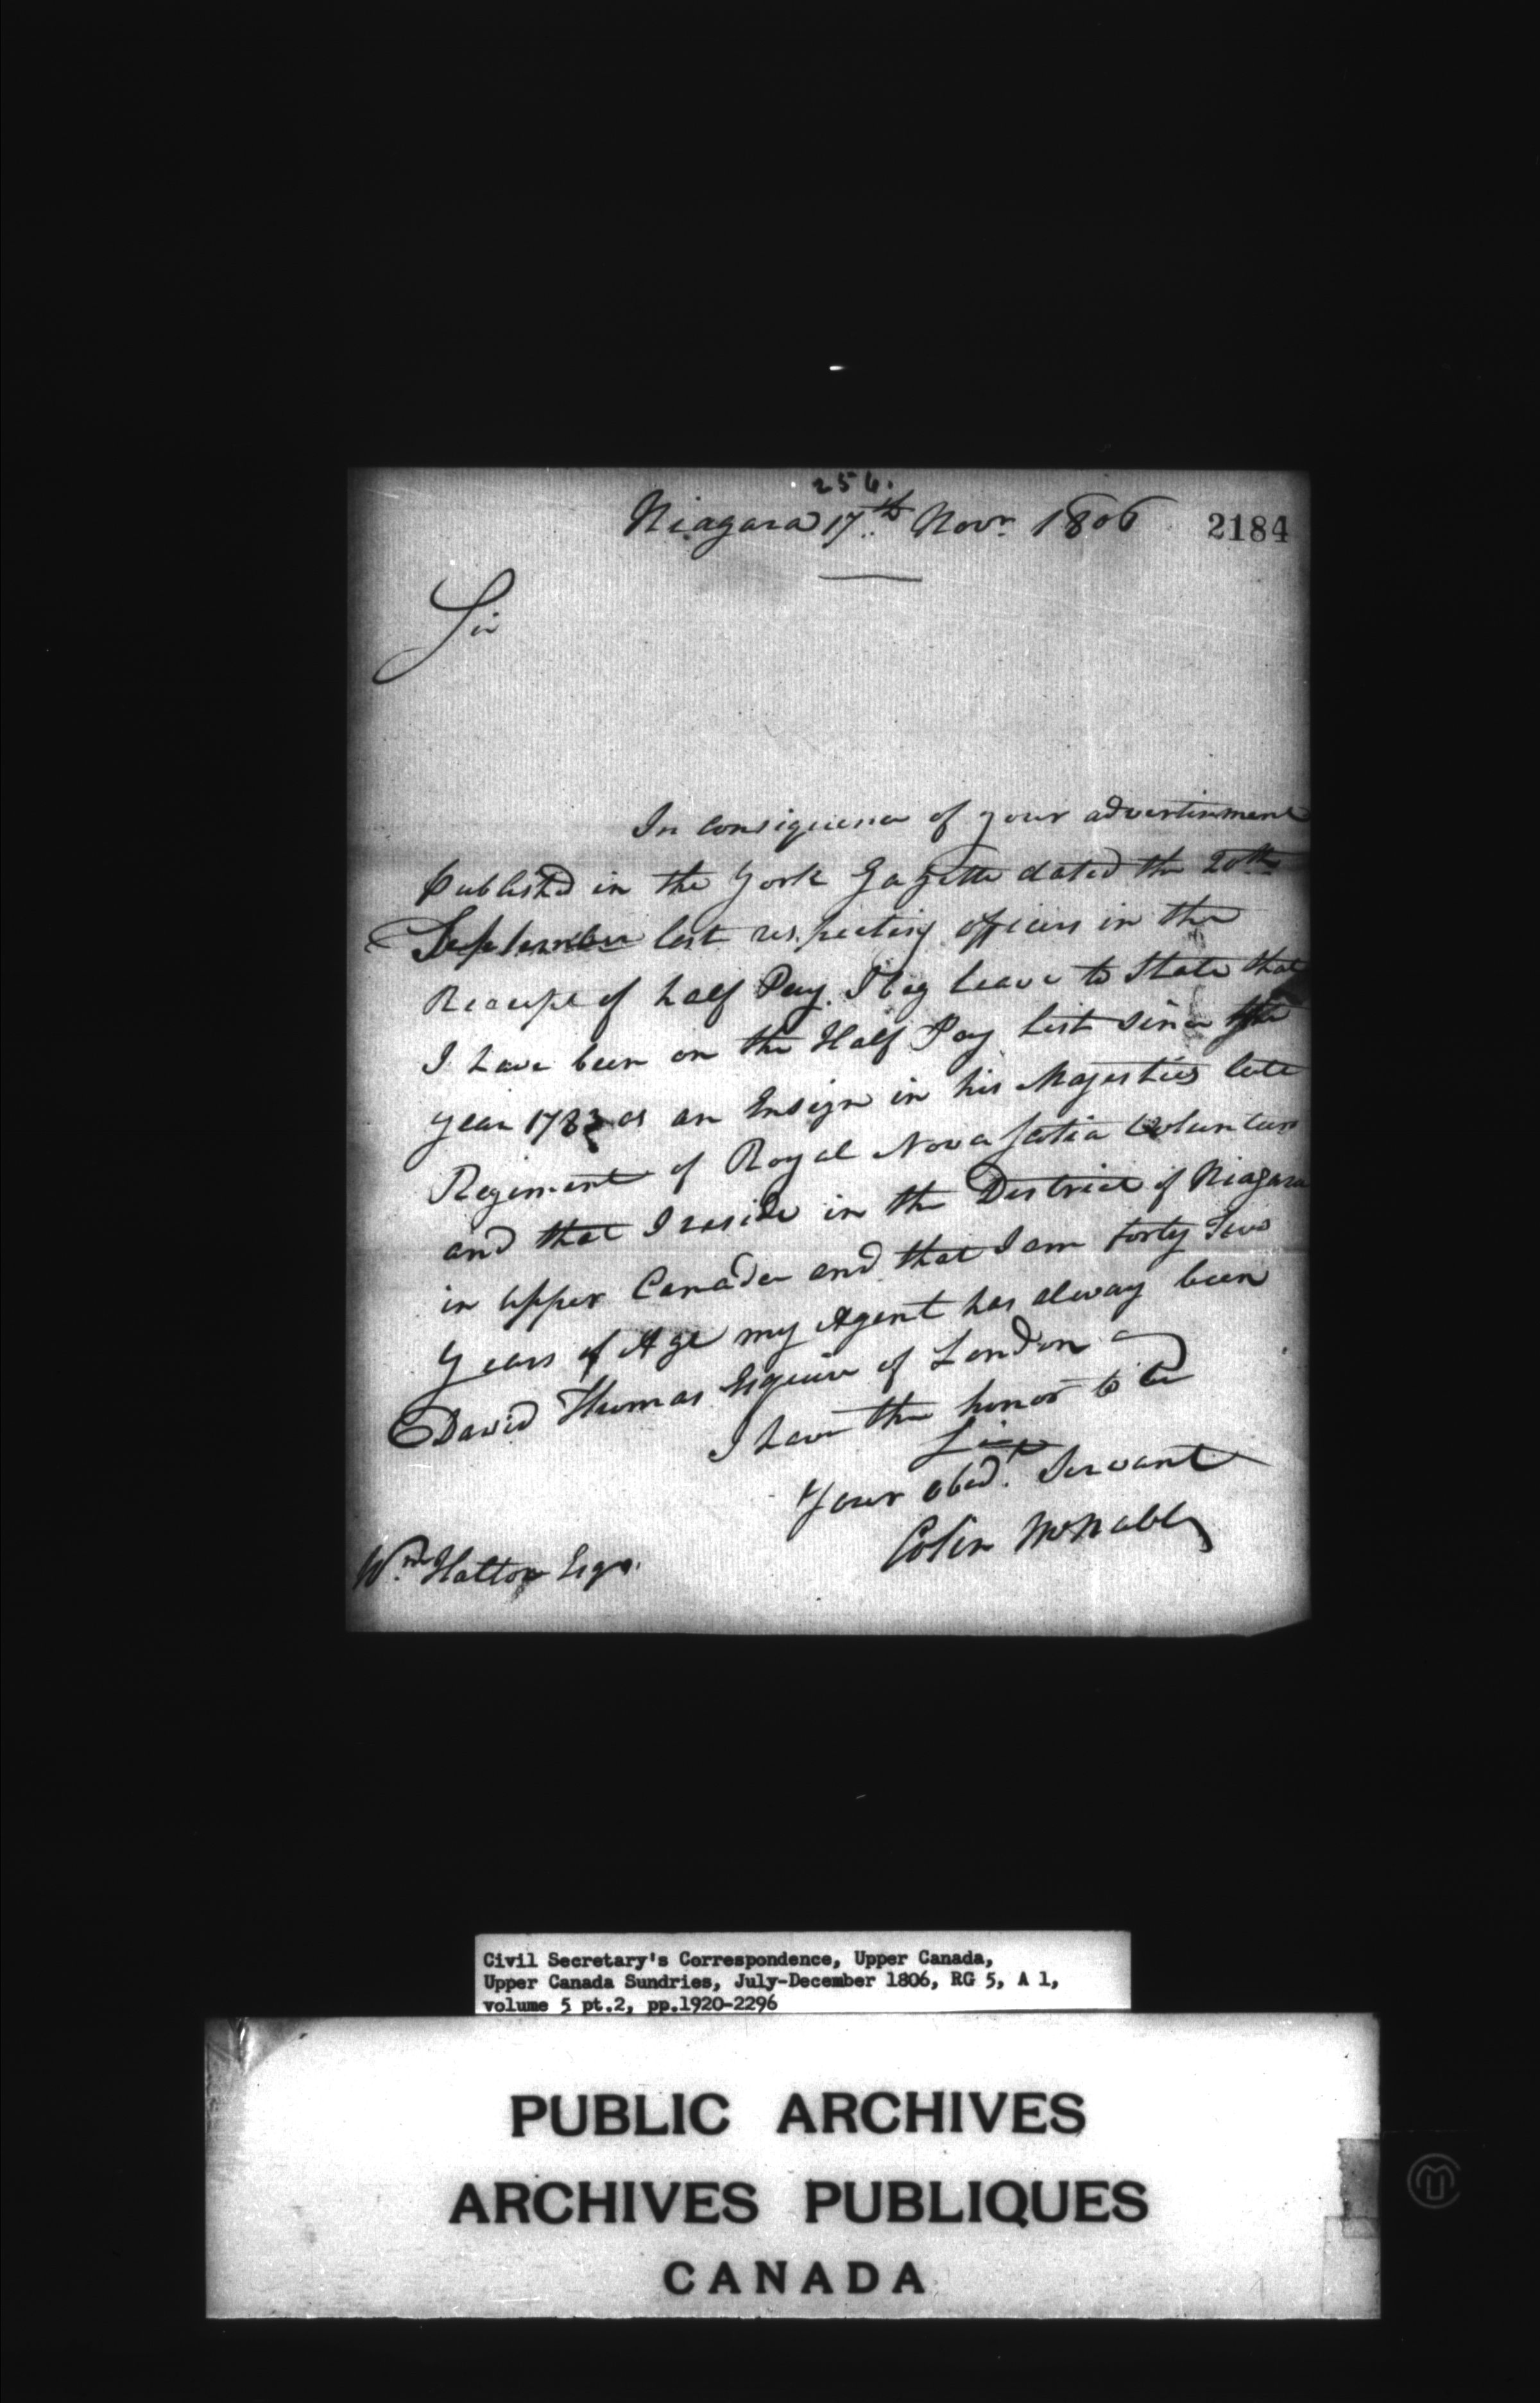 256.
Niagara 17th Novr 1806
2184
Sir
In Consiquence of your advertisement
Publish'd in the York Gazette dated the 20th
September last respecting officers in the
Receipt of half Pay. I beg leave to State that
I have been on the Half Pay list since the
year 1783 as an Ensign in his Majesties late
Regiment of Royal Nova Scotia Volunteers
and that I reside in the District of Niagara
in upper Canada and that I am forty Two
Years of Age my Agent has alway been
David Thomas Esquire of London
I have the honor to be
Sir
Your obedt. Servant
Colin McNabb
Wm Hatton Esqr.
Civil Secretary's Correspondence, Upper Canada,
Upper Canada Sundries, July-December 1806, RG 5, A 1,
volume 5 pt.2, pp.1920-2296
PUBLIC ARCHIVES
ARCHIVES PUBLIQUES
CANADA